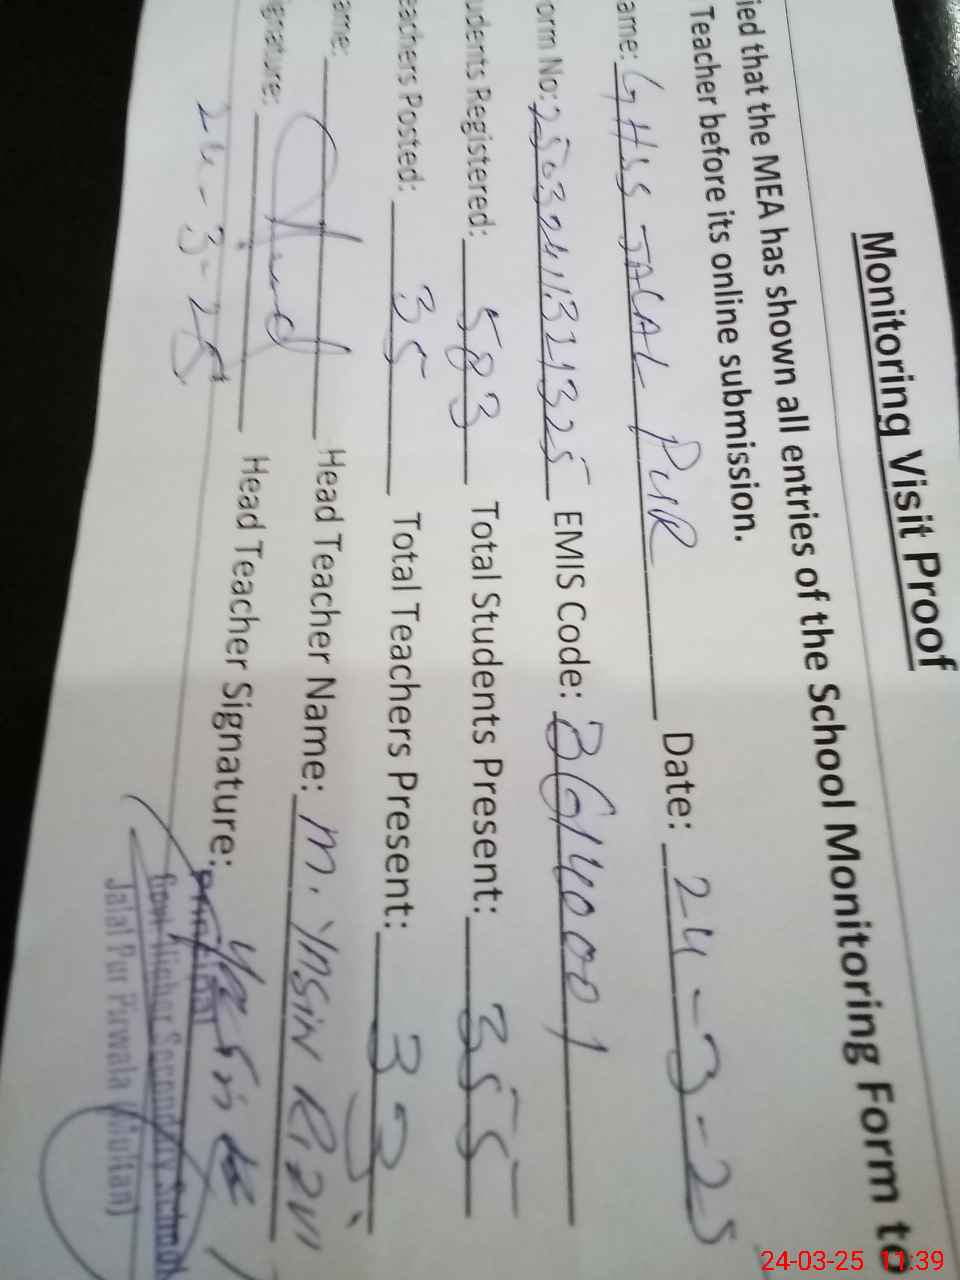 Monitoring Visit Proof
ied that the MEA has shown all entries of the School Monitoring Form to
Teacher before its online submission.
ame: GHSS JALAL PUR Date: 24-3-25
orm No: EMIS Code: 3614001
udents Registered: 583 Total Students Present: 355
eachers Posted: 35 Total Teachers Present: 33
ame: Head Teacher Name: M. YASIN RIZVI
gnature: Head Teacher Signature:
24-3-25
Principal
Govt Higher Secondary School
Jalal Pur Pirwala (Multan)
24-03-25 11:39